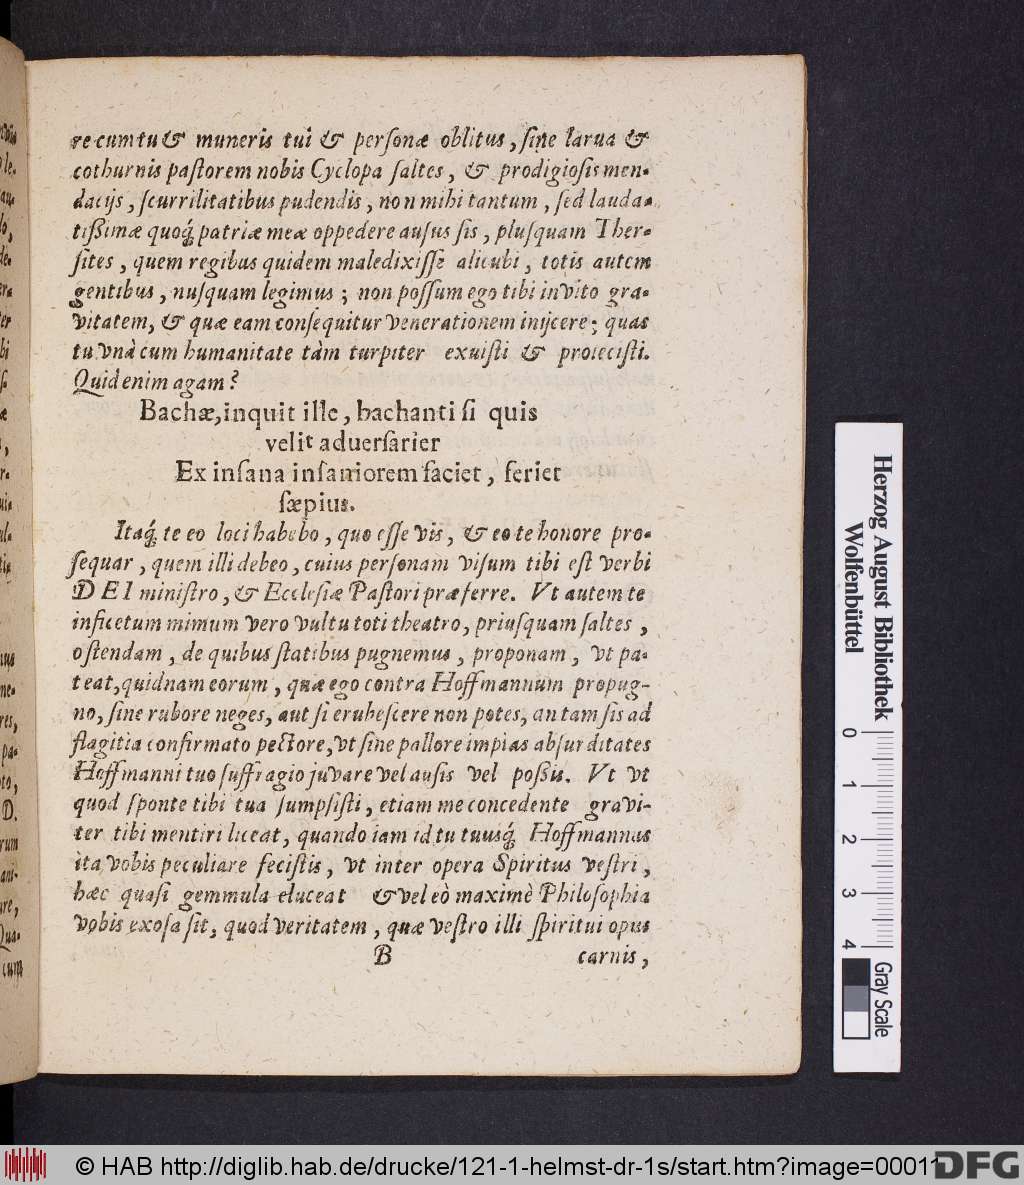 re cum tu & muneris tui & personæ oblitus, sine larua &
cothurnis pastorem nobis Cyclopa saltes, & prodigiosis men-
dacijs, scurrilitatibus pudendis, non mihi tantum, sed lauda-
tißimæ quoq́; patriæ meæ oppedere ausus sis, plusquam Ther-
sites, quem regibus quidem maledixisse alicubi, totis autem
gentibus, nusquam legimus; non possum ego tibi invito gra-
vitatem, & quæ eam consequitur venerationem inijcere; quas
tu vnà cum humanitate tàm turpiter exuisti & proiecisti.
Quid enim agam?
Bachæ, inquit ille, bachanti si quis
velit aduersarier
Ex insana insaniorem faciet, feriet
sæpius.
Itaq́; te eo loci habebo, quo esse vis, & eo te honore pro-
sequar, quem illi debeo, cuius personam visum tibi est verbi
DEI ministro, & Ecclesiæ Pastori præferre. Vt autem te
inficetum mimum vero vultu toti theatro, priusquam saltes,
ostendam, de quibus statibus pugnemus, proponam, vt pa-
teat, quidnam eorum, quæ ego contra Hoffmannum propug-
no, sine rubore neges, aut si erubescere non potes, an tam sis ad
flagitia confirmato pectore, vt sine pallore impias absurditates
Hoffmanni tuo suffragio juvare vel ausis vel poßis. Vt vt
quod sponte tibi tua sumpsisti, etiam me concedente gravi-
ter tibi mentiri liceat, quando iam id tu tuusq́; Hoffmannus
ita vobis peculiare fecistis, vt inter opera Spiritus vestri,
hæc quasi gemmula eluceat & vel eò maximè Philosophia
vobis exosa sit, quod veritatem, quæ vestro illi spiritui opus
B carnis,
Herzog August Bibliothek
Wolfenbüttel
0 1 2 3 4
Gray Scale
© HAB http://diglib.hab.de/drucke/121-1-helmst-dr-1s/start.htm?image=00011
DFG